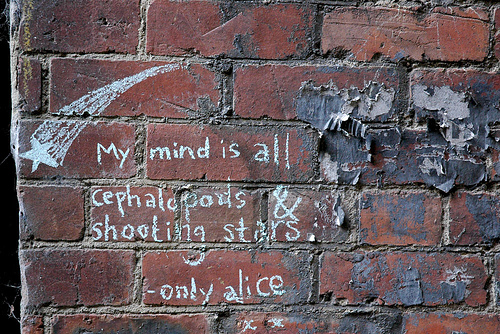 My mind is all
cephalopods &
shooting stars.
-only alice
x x